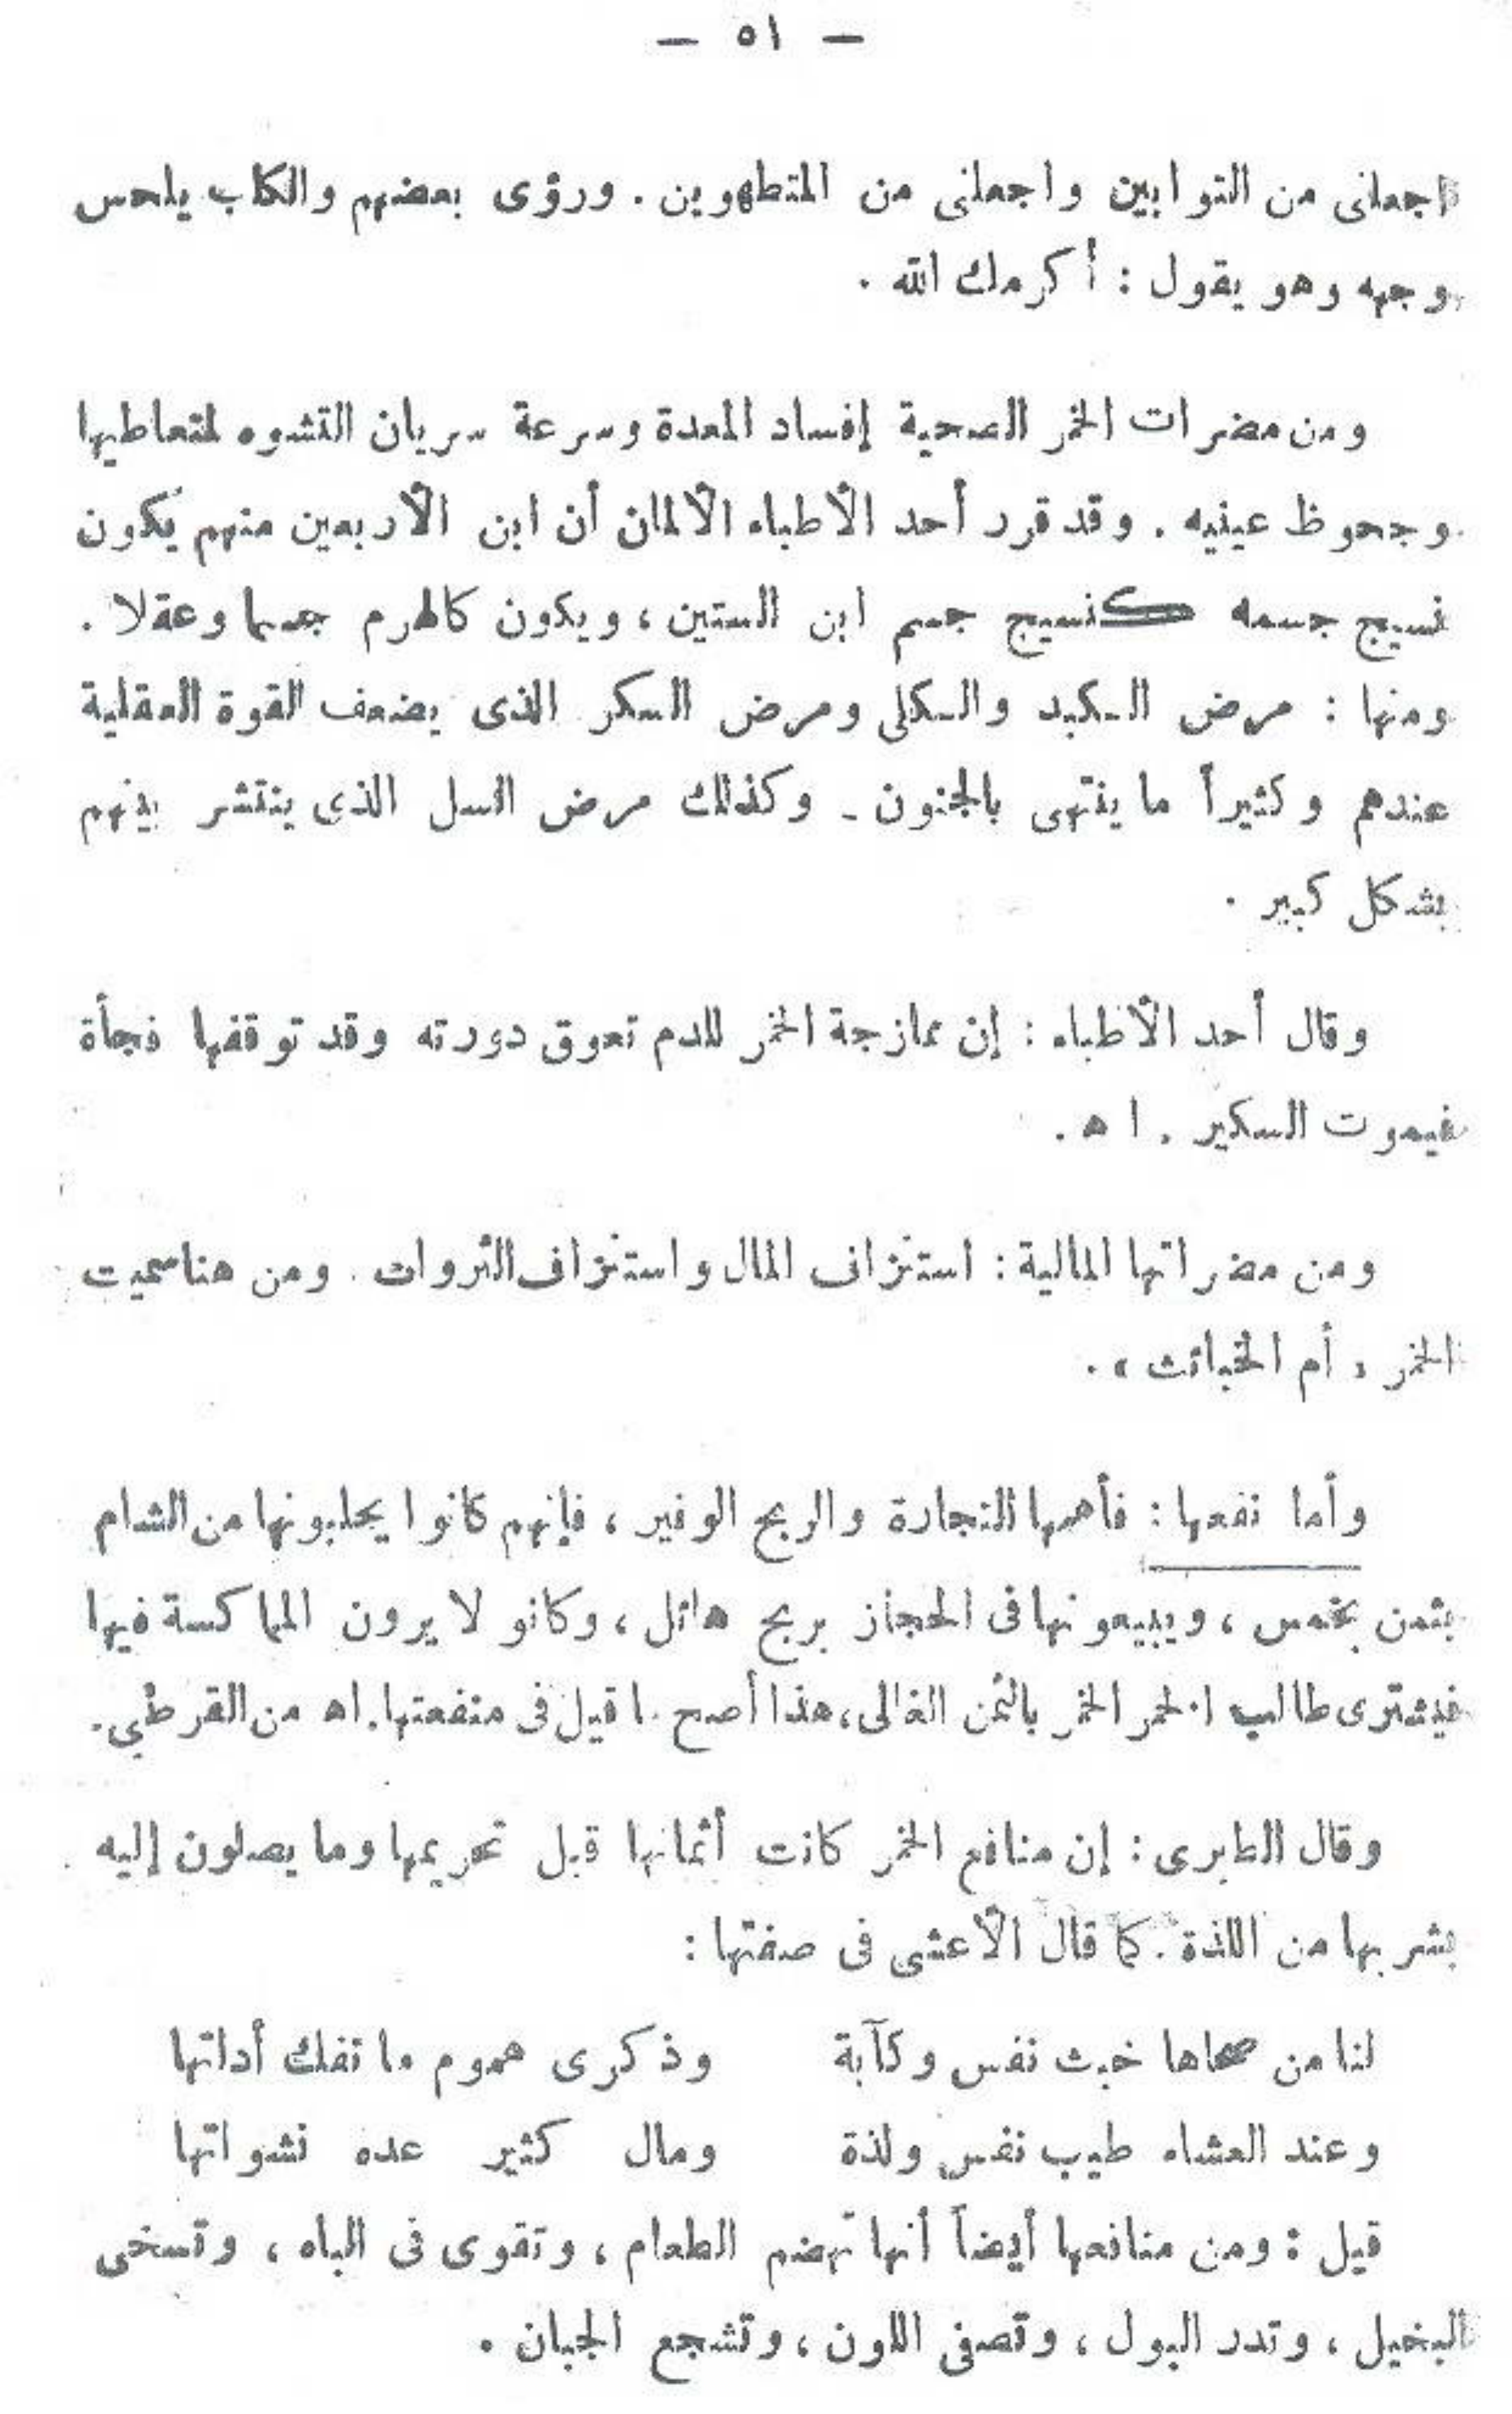 — ٥١ —
اجعلنى من التوابين واجعلنى من المتطهرين . ورؤى بعضهم والكلب يلحس
وجهه وهو يقول : أكرمك الله .
ومن مضرات الخمر الصحية إفساد المعدة وسرعة سريان التشوه لمتعاطيها
وجحوظ عينيه . وقد قرر أحد الأطباء الألمان أن ابن الأربعين منهم يكون
نسيج جسمه كنسيج جسم ابن الستين ، ويكون كالهرم جسما وعقلا .
ومنها : مرض الكبد والكلى ومرض السكر الذى يضعف القوة العقلية
عندهم وكثيراً ما ينتهى بالجنون - وكذلك مرض السل الذى ينتشر بينهم
بشكل كبير .
وقال أحد الأطباء : إن ممازجة الخمر للدم تعوق دورته وقد توقفها فجأة
فيموت السكير . ا ه .
ومن مضراتها المالية : استنزاف المال واستنزاف الثروات . ومن هنا سميت
الخمر « أم الخبائث » .
وأما نفعها : فأهمها التجارة والربح الوفير ، فإنهم كانوا يجلبونها من الشام
بثمن بخس ، ويبيعونها فى الحجاز بربح هائل ، وكانو لا يرون المماكسة فيها
فيشترى طالب الخمر الخمر بالثمن الغالى ، هذا أصح ما قيل فى منفعتها . اه من القرطبي .
وقال الطبرى : إن منافع الخمر كانت أثمانها قبل تحريمها وما يصلون إليه
بشربها من اللذة . كما قال الأعشى فى صفتها :
لنا من ضحاها خبث نفس وكآبة وذكرى هموم ما تفك أداتها
وعند العشاء طيب نفس ولذة ومال كثير عده نشواتها
قيل : ومن منافعها أيضاً أنها تهضم الطعام ، وتقوى فى الباه ، وتسخى
البخيل ، وتدر البول ، وتصفى اللون ، وتشجع الجبان .